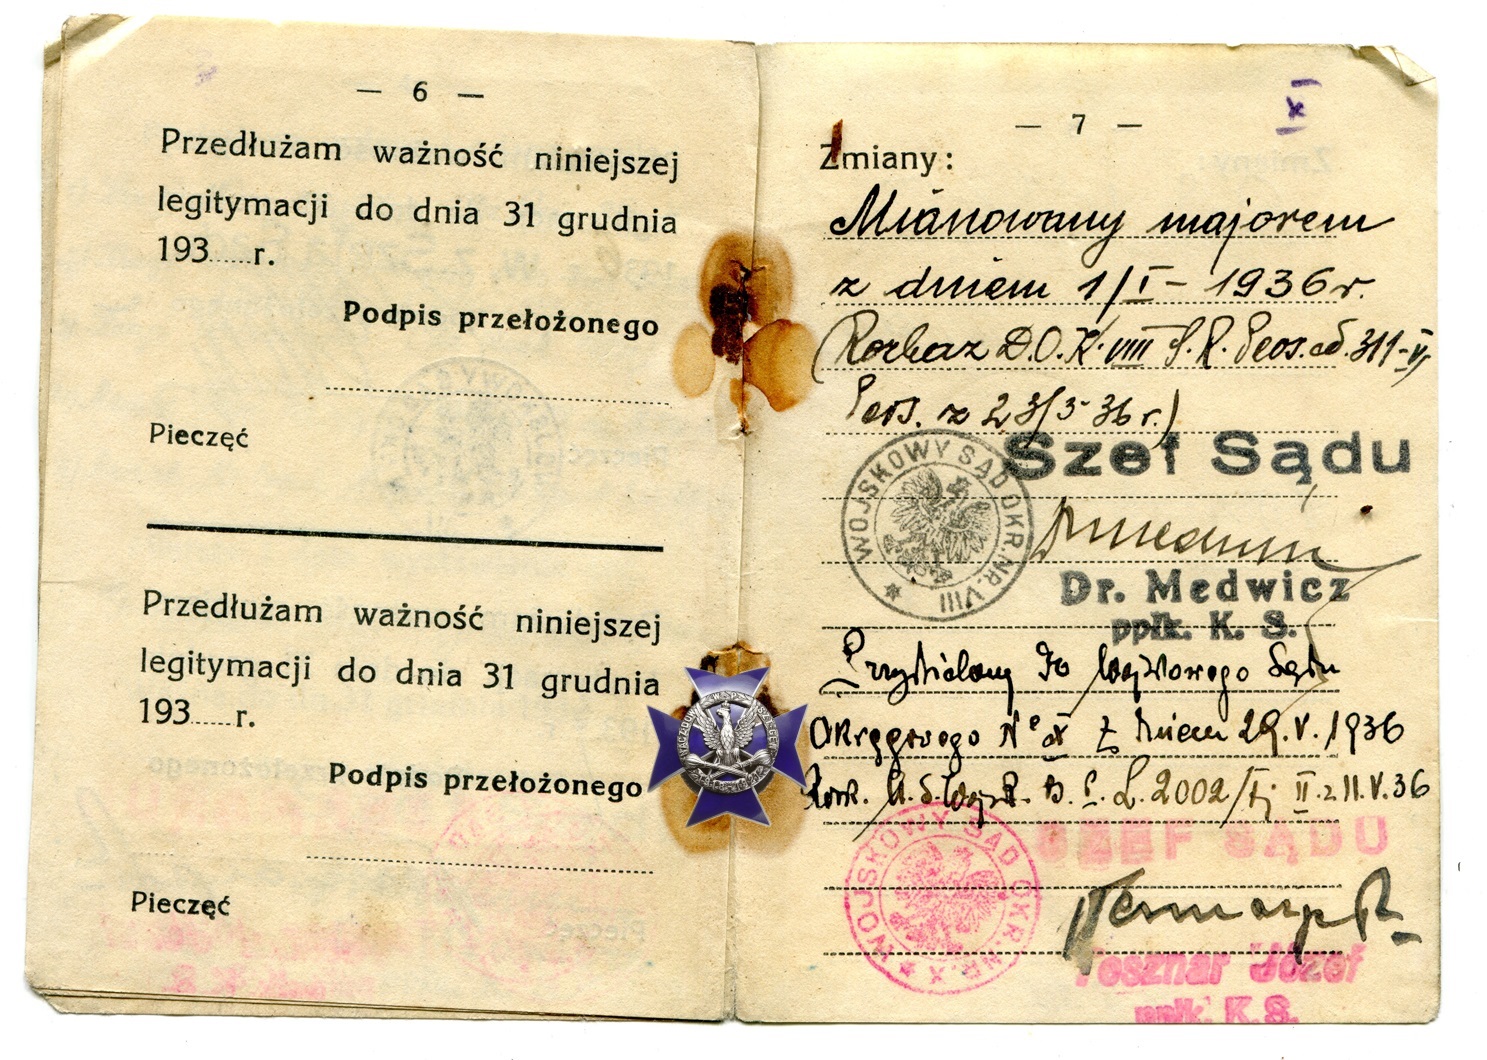 — 6 —
Przedłużam ważność niniejszej
legitymacji do dnia 31 grudnia
193.....r.
Podpis przełożonego
Pieczęć
Przedłużam ważność niniejszej
legitymacji do dnia 31 grudnia
193.....r.
Podpis przełożonego
Pieczęć
— 7 —
Zmiany:
Mianowany majorem
z dniem 1/I - 1936 r.
(Rozkaz D.O.K. VIII
Pers. z 23/3-36 r.)
Szef Sądu
WOJSKOWY SĄD OKR. NR. VIII
Dr. Medwicz
ppłk. K. S.
Przydzielony do Wojskowego Sądu
Okręgowego Nº X z dniem 29.V.1936
L. 2002/ II. z 11.V.36
SZEF SĄDU
WOJSKOWY SĄD OKR. NR. X
Tesznar Józef
ppłk. K.S.